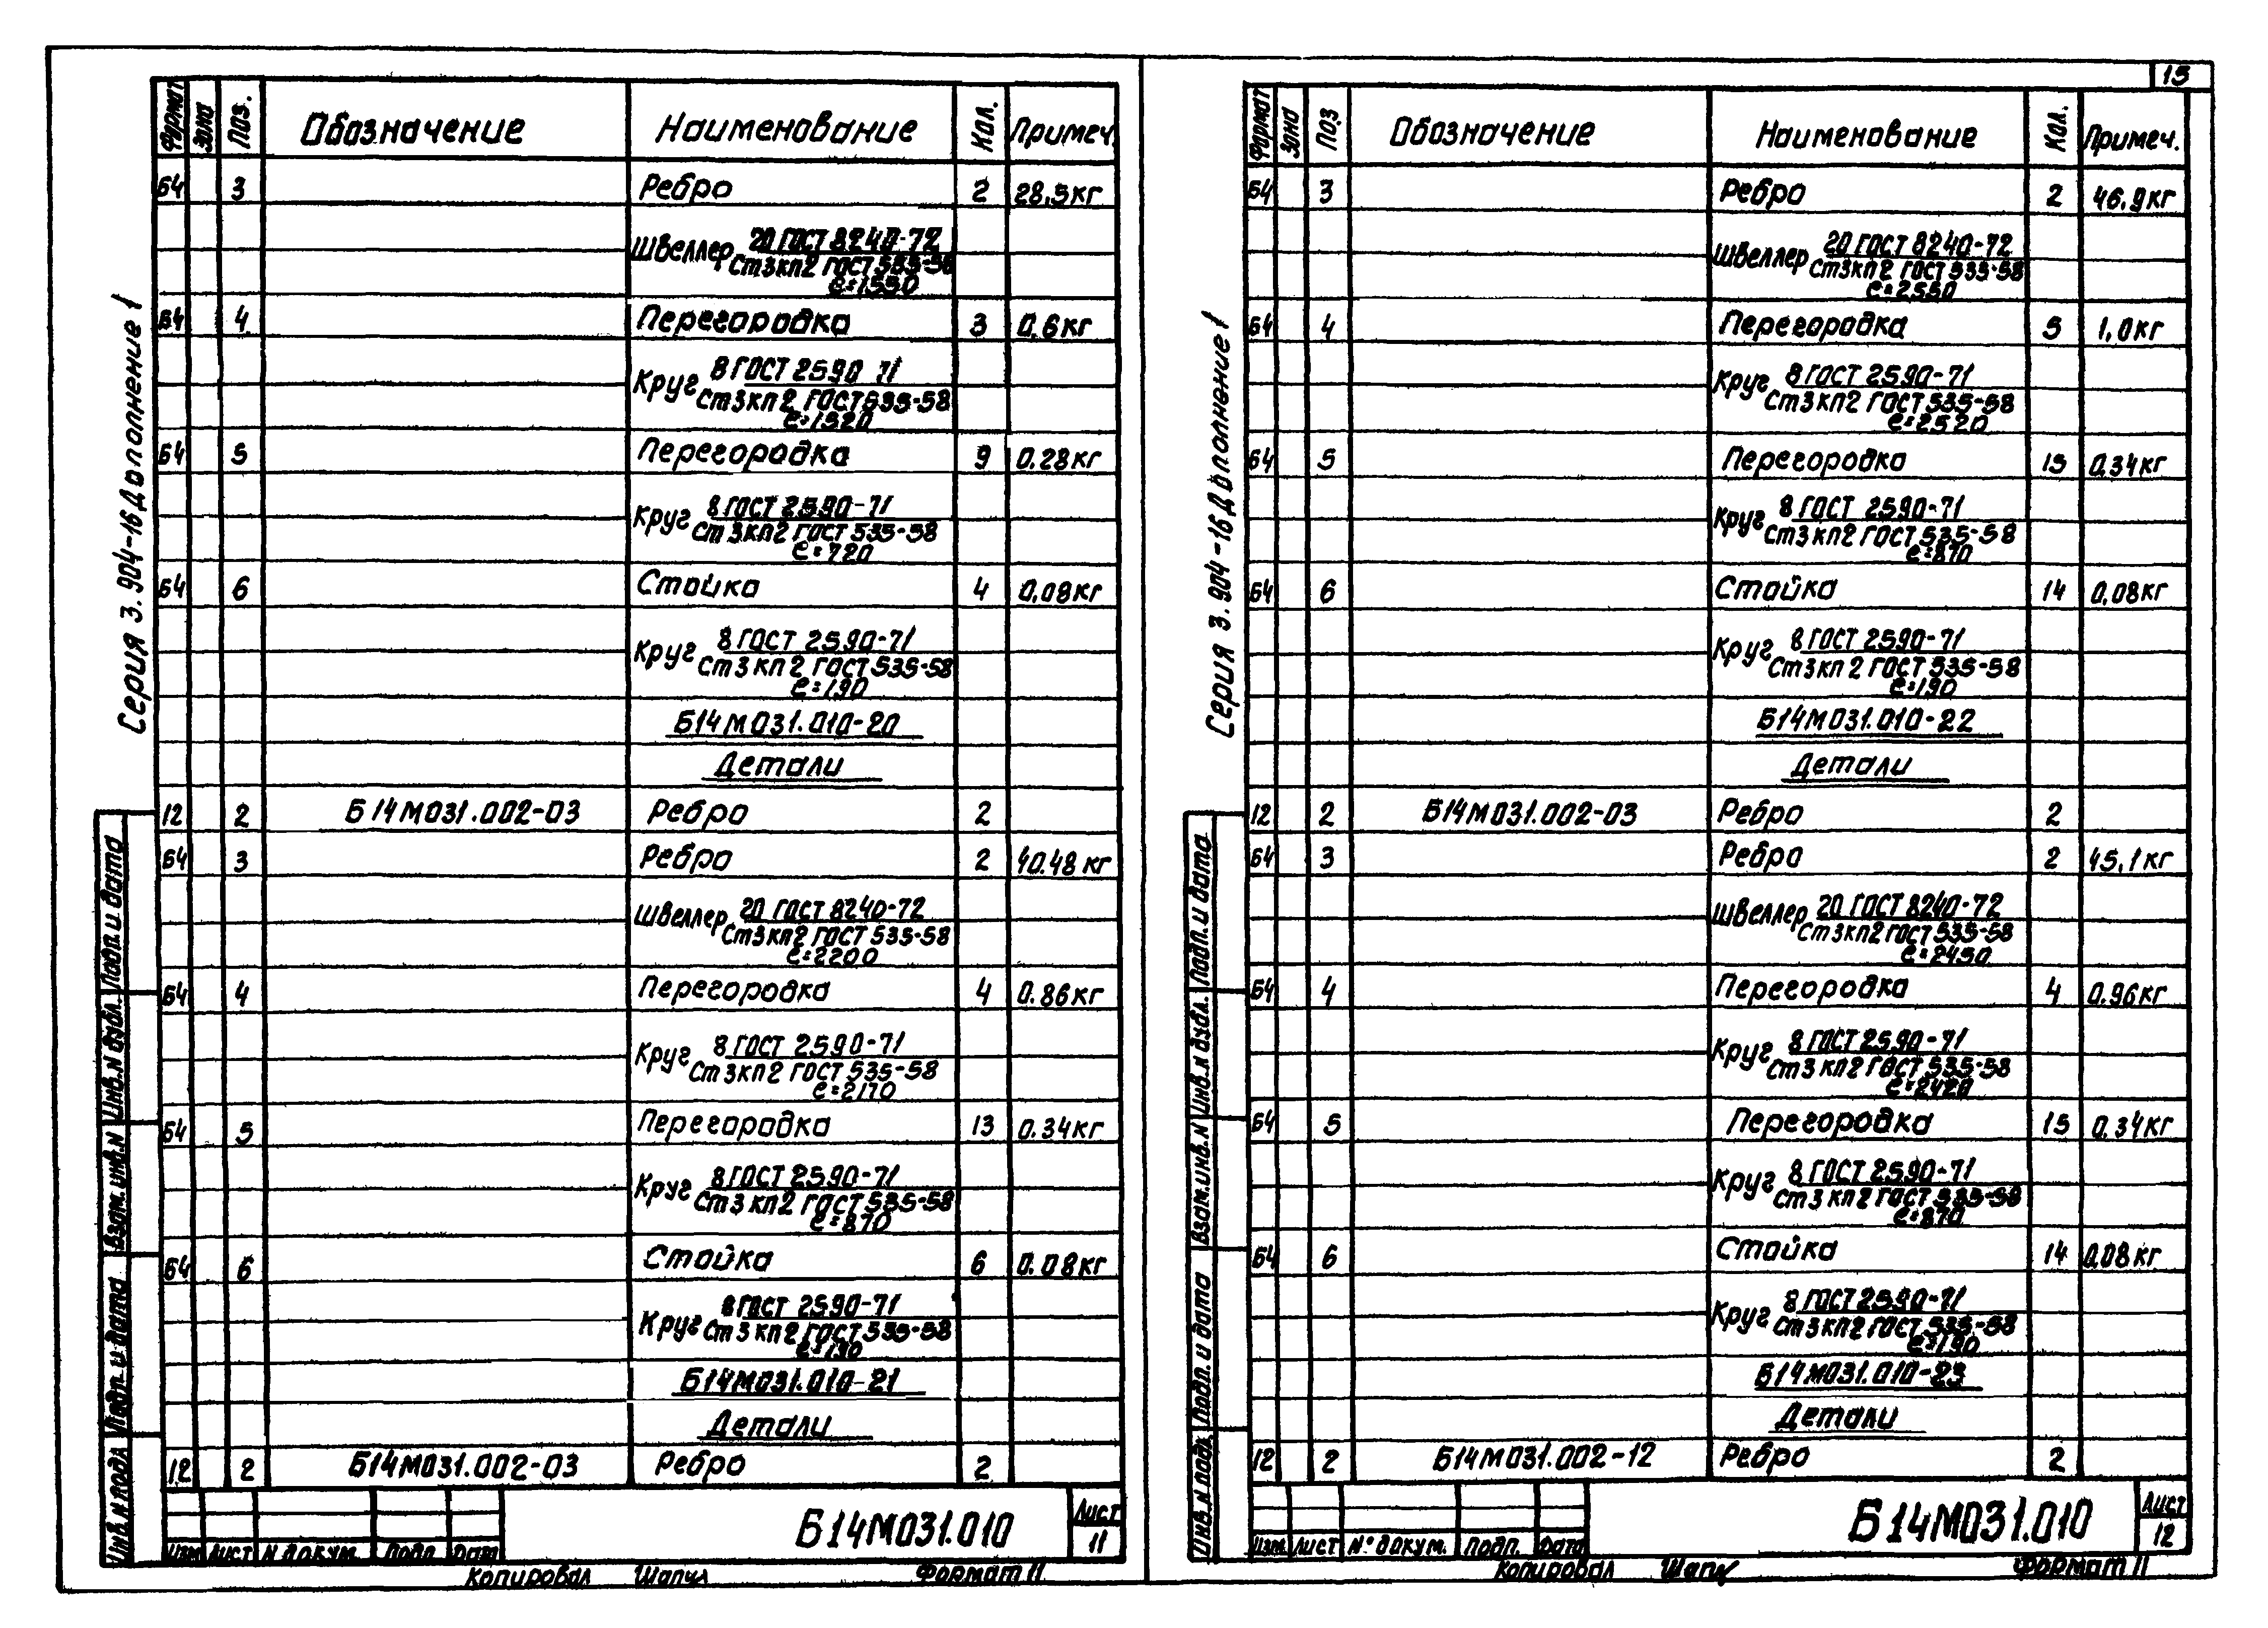 15
Серия 3.904-16 Дополнение 1
Формат Зона Поз. Обозначение Наименование Кол. Примеч.
Б4 3 Ребро 2 28,5кг
Швеллер 20 ГОСТ 8240-72
Ст3кп2 ГОСТ 535-58
ℓ=1550
Б4 4 Перегородка 3 0,6кг
Круг 8 ГОСТ 2590-71
Ст3кп2 ГОСТ 535-58
ℓ=1520
Б4 5 Перегородка 9 0.28кг
Круг 8 ГОСТ 2590-71
Ст3кп2 ГОСТ 535-58
ℓ=720
Б4 6 Стойка 4 0,08кг
Круг 8 ГОСТ 2590-71
Ст3кп2 ГОСТ 535-58
ℓ=190
Б14М031.010-20
Детали
12 2 Б14М031.002-03 Ребро 2
Б4 3 Ребро 2 40.48кг
Швеллер 20 ГОСТ 8240-72
Ст3кп2 ГОСТ 535-58
ℓ=2200
Б4 4 Перегородка 4 0.86кг
Круг 8 ГОСТ 2590-71
Ст3кп2 ГОСТ 535-58
ℓ=2170
Б4 5 Перегородка 13 0.34кг
Круг 8 ГОСТ 2590-71
Ст3кп2 ГОСТ 535-58
ℓ=870
Б4 6 Стойка 6 0.08кг
Круг 8 ГОСТ 2590-71
Ст3кп2 ГОСТ 535-58
ℓ=190
Б14М031.010-21
Детали
12 2 Б14М031.002-03 Ребро 2
Инв.N подл Подп. и дата Взам.инв.N Инв.N дубл. Подп. и дата
Изм Лист N докум. Подп Дата
Б14М031.010
Лист
11
Копировал Шапул Формат 11
Серия 3.904-16 Дополнение 1
Формат Зона Поз Обозначение Наименование Кол. Примеч.
Б4 3 Ребро 2 46.9кг
Швеллер 20 ГОСТ 8240-72
Ст3кп2 ГОСТ 535-58
ℓ=2550
Б4 4 Перегородка 5 1,0кг
Круг 8 ГОСТ 2590-71
Ст3кп2 ГОСТ 535-58
ℓ=2520
Б4 5 Перегородка 15 0.34кг
Круг 8 ГОСТ 2590-71
Ст3кп2 ГОСТ 535-58
ℓ=870
Б4 6 Стойка 14 0,08кг
Круг 8 ГОСТ 2590-71
Ст3кп2 ГОСТ 535-58
ℓ=190
Б14М031.010-22
Детали
12 2 Б14М031.002-03 Ребро 2
Б4 3 Ребро 2 45,1кг
Швеллер 20 ГОСТ 8240-72
Ст3кп2 ГОСТ 535-58
ℓ=2450
Б4 4 Перегородка 4 0.96кг
Круг 8 ГОСТ 2590-71
Ст3кп2 ГОСТ 535-58
ℓ=2420
Б4 5 Перегородка 15 0.34кг
Круг 8 ГОСТ 2590-71
Ст3кп2 ГОСТ 535-58
ℓ=870
Б4 6 Стойка 14 0,08кг
Круг 8 ГОСТ 2590-71
Ст3кп2 ГОСТ 535-58
ℓ=190
Б14М031.010-23
Детали
12 2 Б14М031.002-12 Ребро 2
Инв.N подл. Подп. и дата Взам.инв.N Инв.N дубл. Подп. и дата
Изм. Лист № докум. Подп. Дата
Б14М031.010
Лист
12
Копировал Шапул Формат 11